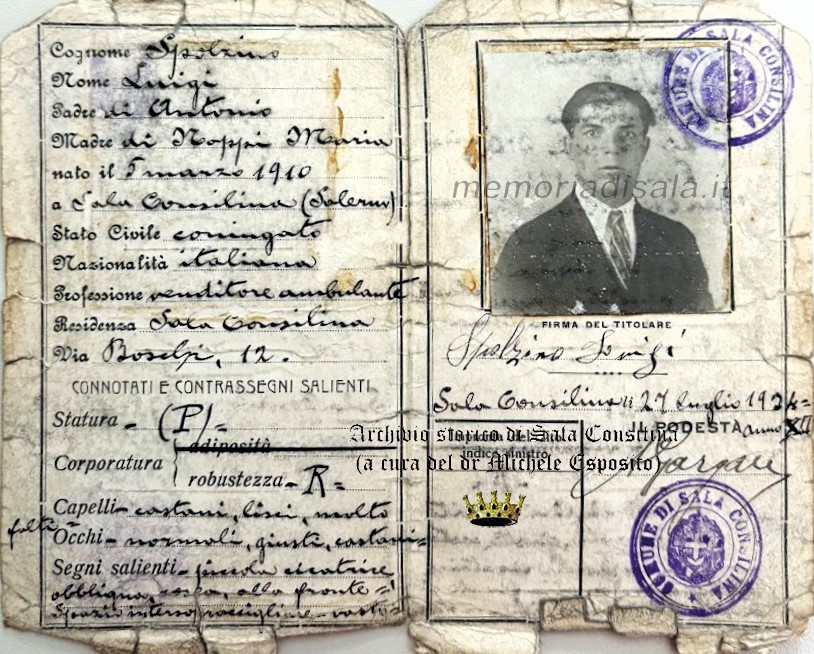 Cognome Spolzino
Nome Luigi
Padre di Antonio
Madre di Noppi Maria
nato il 5 marzo 1910
a Sala Consilina (Salerno)
Stato Civile coniugato
Nazionalità italiana
Professione venditore ambulante
Residenza Sala Consilina
Via 12.
CONNOTATI E CONTRASSEGNI SALIENTI
Statura - (P) =
Corporatura
adiposità
robustezza - R =
Capelli - castani, lisci, molto
folti =
Occhi - normali, giusti, castani =
Segni salienti - piccola cicatrice
obbliqua, rosea, alla fronte =
Spazio intersopraccigliare
COMUNE DI SALA CONSILINA
memoriadisala.it
FIRMA DEL TITOLARE
Spolzino Luigi
Sala Consilina li 27 luglio 1934 =
IL PODESTÀ anno XII
indice sinistro
Archivio storico di Sala Consilina
(a cura del dr Michele Esposito)
COMUNE DI SALA CONSILINA